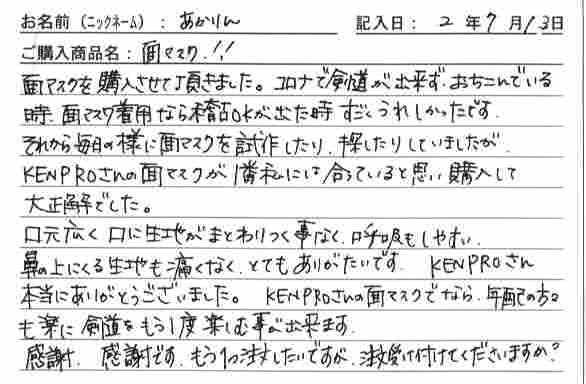 お名前(ニックネーム) : あかりん 記入日: 2 年 7 月 13日
ご購入商品名: 面マスク!!
面マスクを購入させて頂きました。コロナで剣道が出来ず、おちこんでいる
時、面マスク着用なら稽古OKが出た時 すごくうれしかったです。
それから毎日の様に面マスクを試作したり、探したりしていましたが、
KENPROさんの面マスクが1番私には合っていると思い購入して
大正解でした。
口元広く 口に生地がまとわりつく事なく、呼吸もしやすい。
鼻の上にくる生地も痛くなく、とてもありがたいです。 KENPROさん
本当にありがとうございました。 KENPROさんの面マスクでなら、年配の方々
も楽に 剣道をもう1度楽しむ事が出来ます。
感謝、感謝です。もう1つ注文したいですが、注文受け付けてくださいますか?